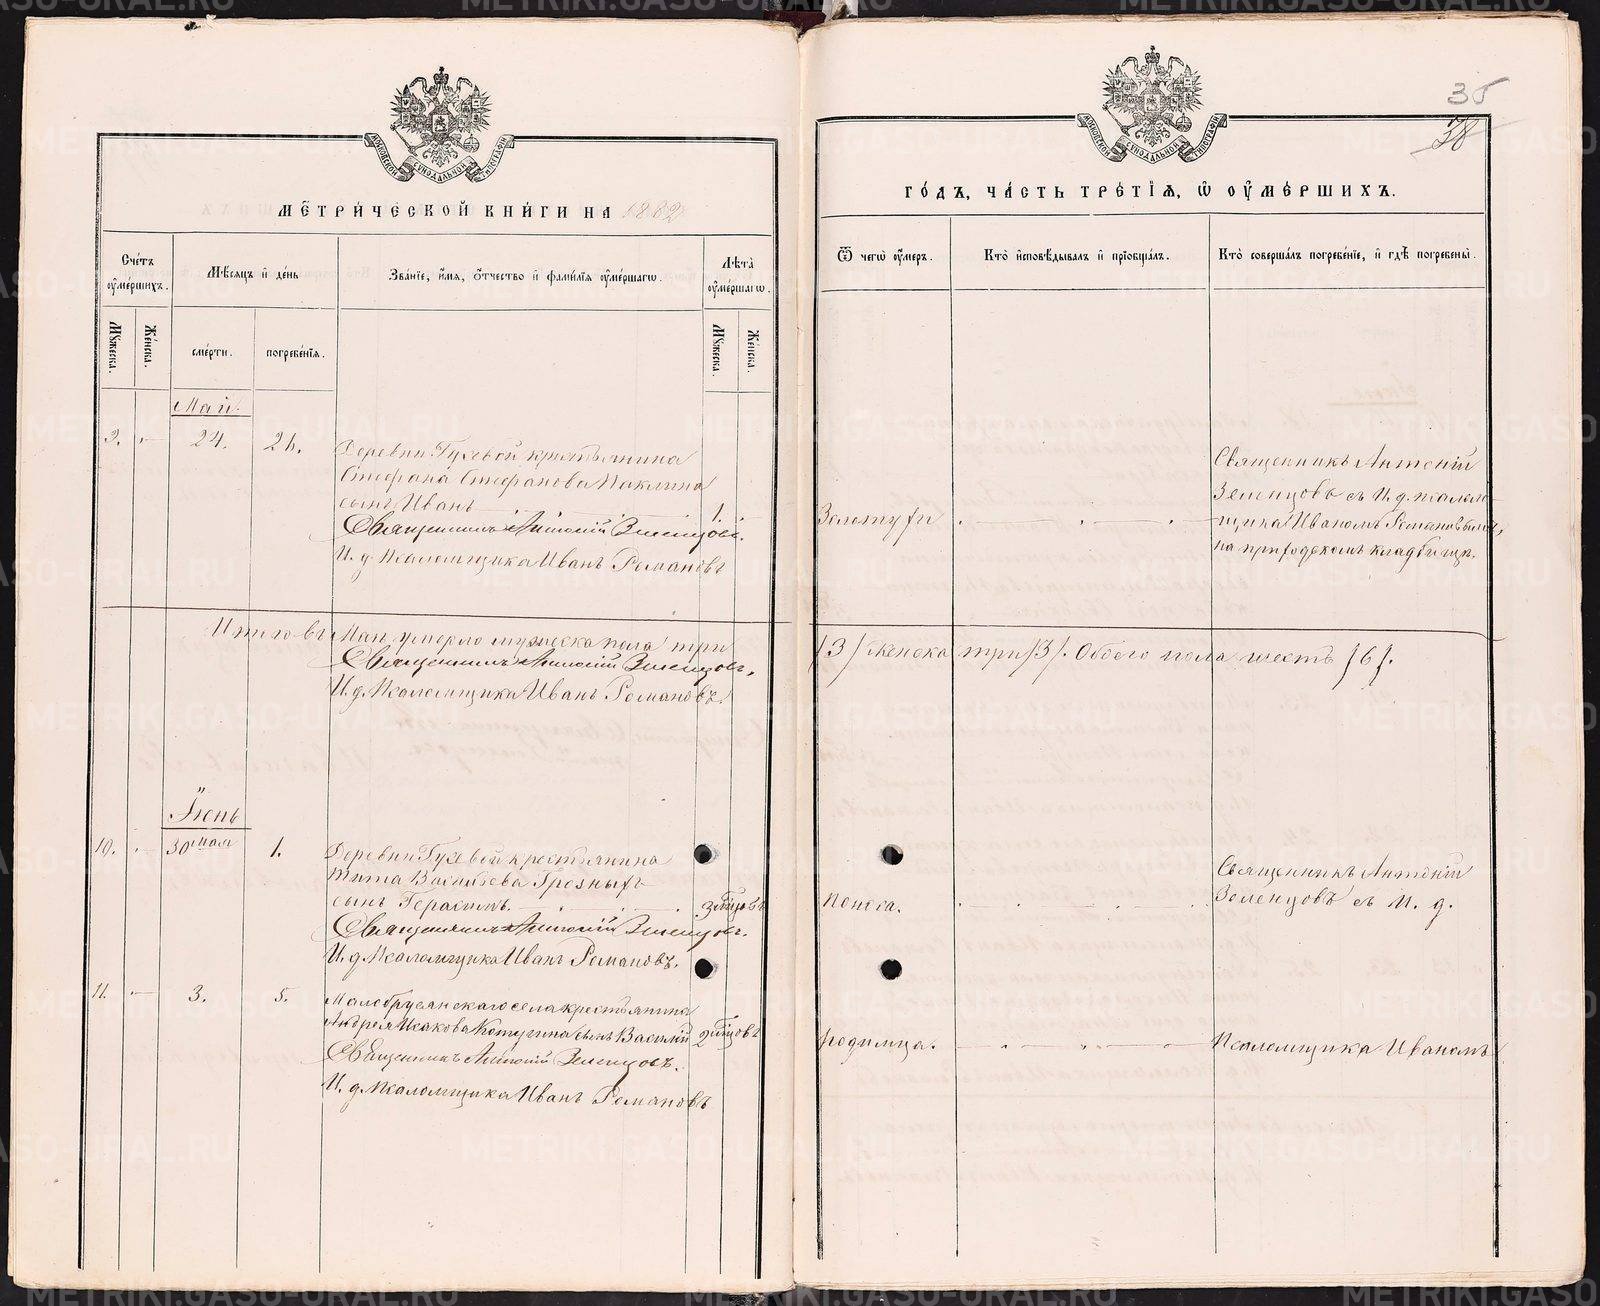 МОСКОВСКОЙ СѴНОДАЛЬНОЙ ТИПОГРАФІИ
МЕТРИ́ЧЕСКОЙ КНИ́ГИ НА 1882
Сче́тъ оу҆ме́ршихъ.
Мѣ́сяцъ и҆ де́нь
Зва́нїе, и҆́мя, ѻ҆́тчество и҆ фамі́лїя оу҆ме́ршагѡ.
Лѣта̀ оу҆ме́ршагѡ.
Мꙋ́жеска.
Же́нска.
сме́рти.
погребе́нїѧ.
Мꙋ́жеска.
Же́нска.
Май.
9. - 24. 26.
Деревни Гусевой крестьянина
Стефана Стефанова Паклина
сынъ Иванъ 1.
Священникъ Антоній Зеленцовъ.
И. д. Псаломщика Иванъ Романовъ
Итого въ Маѣ умерло мужеска пола три
Священникъ Антоній Зеленцовъ.
И. д. Псаломщика Иванъ Романовъ.
Іюнь
10. - 30 мая 1.
Деревни Гусевой крестьянина
Тита Васильева Грозныхъ
сынъ Герасимъ. 3 мѣсцовъ
Священникъ Антоній Зеленцовъ.
И. д. Псаломщика Иванъ Романовъ.
11. - 3. 5.
Малобрусянскаго села крестьянина
Андрея Исакова Котугина сынъ Василій 2 мѣсцовъ
Священникъ Антоній Зеленцовъ.
И. д. Псаломщика Иванъ Романовъ
36
38
МОСКОВСКОЙ СѴНОДАЛЬНОЙ ТИПОГРАФІИ
ГО́ДЪ, ЧА́СТЬ ТРЕ́ТІЯ, Ѡ҆ ОУ҆МЕ́РШИХЪ.
Ѿ чегѡ̀ оу҆́меръ.
Кто̀ и҆сповѣ́дывалъ и҆ прїѡбща́лъ.
Кто̀ соверша́лъ погребе́нїе, и҆ гдѣ̀ погребены̀.
Золотухи
Священникъ Антоній
Зеленцовъ съ И. д. псалом-
щика Иваномъ Романовымъ,
на приходскомъ кладбищѣ.
/3/ женска три /3/. Обоего пола шесть /6/.
Поноса.
Священникъ Антоній
Зеленцовъ съ И. д.
Родимца.
Псаломщика Иваномъ
METRIKI.GASO-URAL.RU